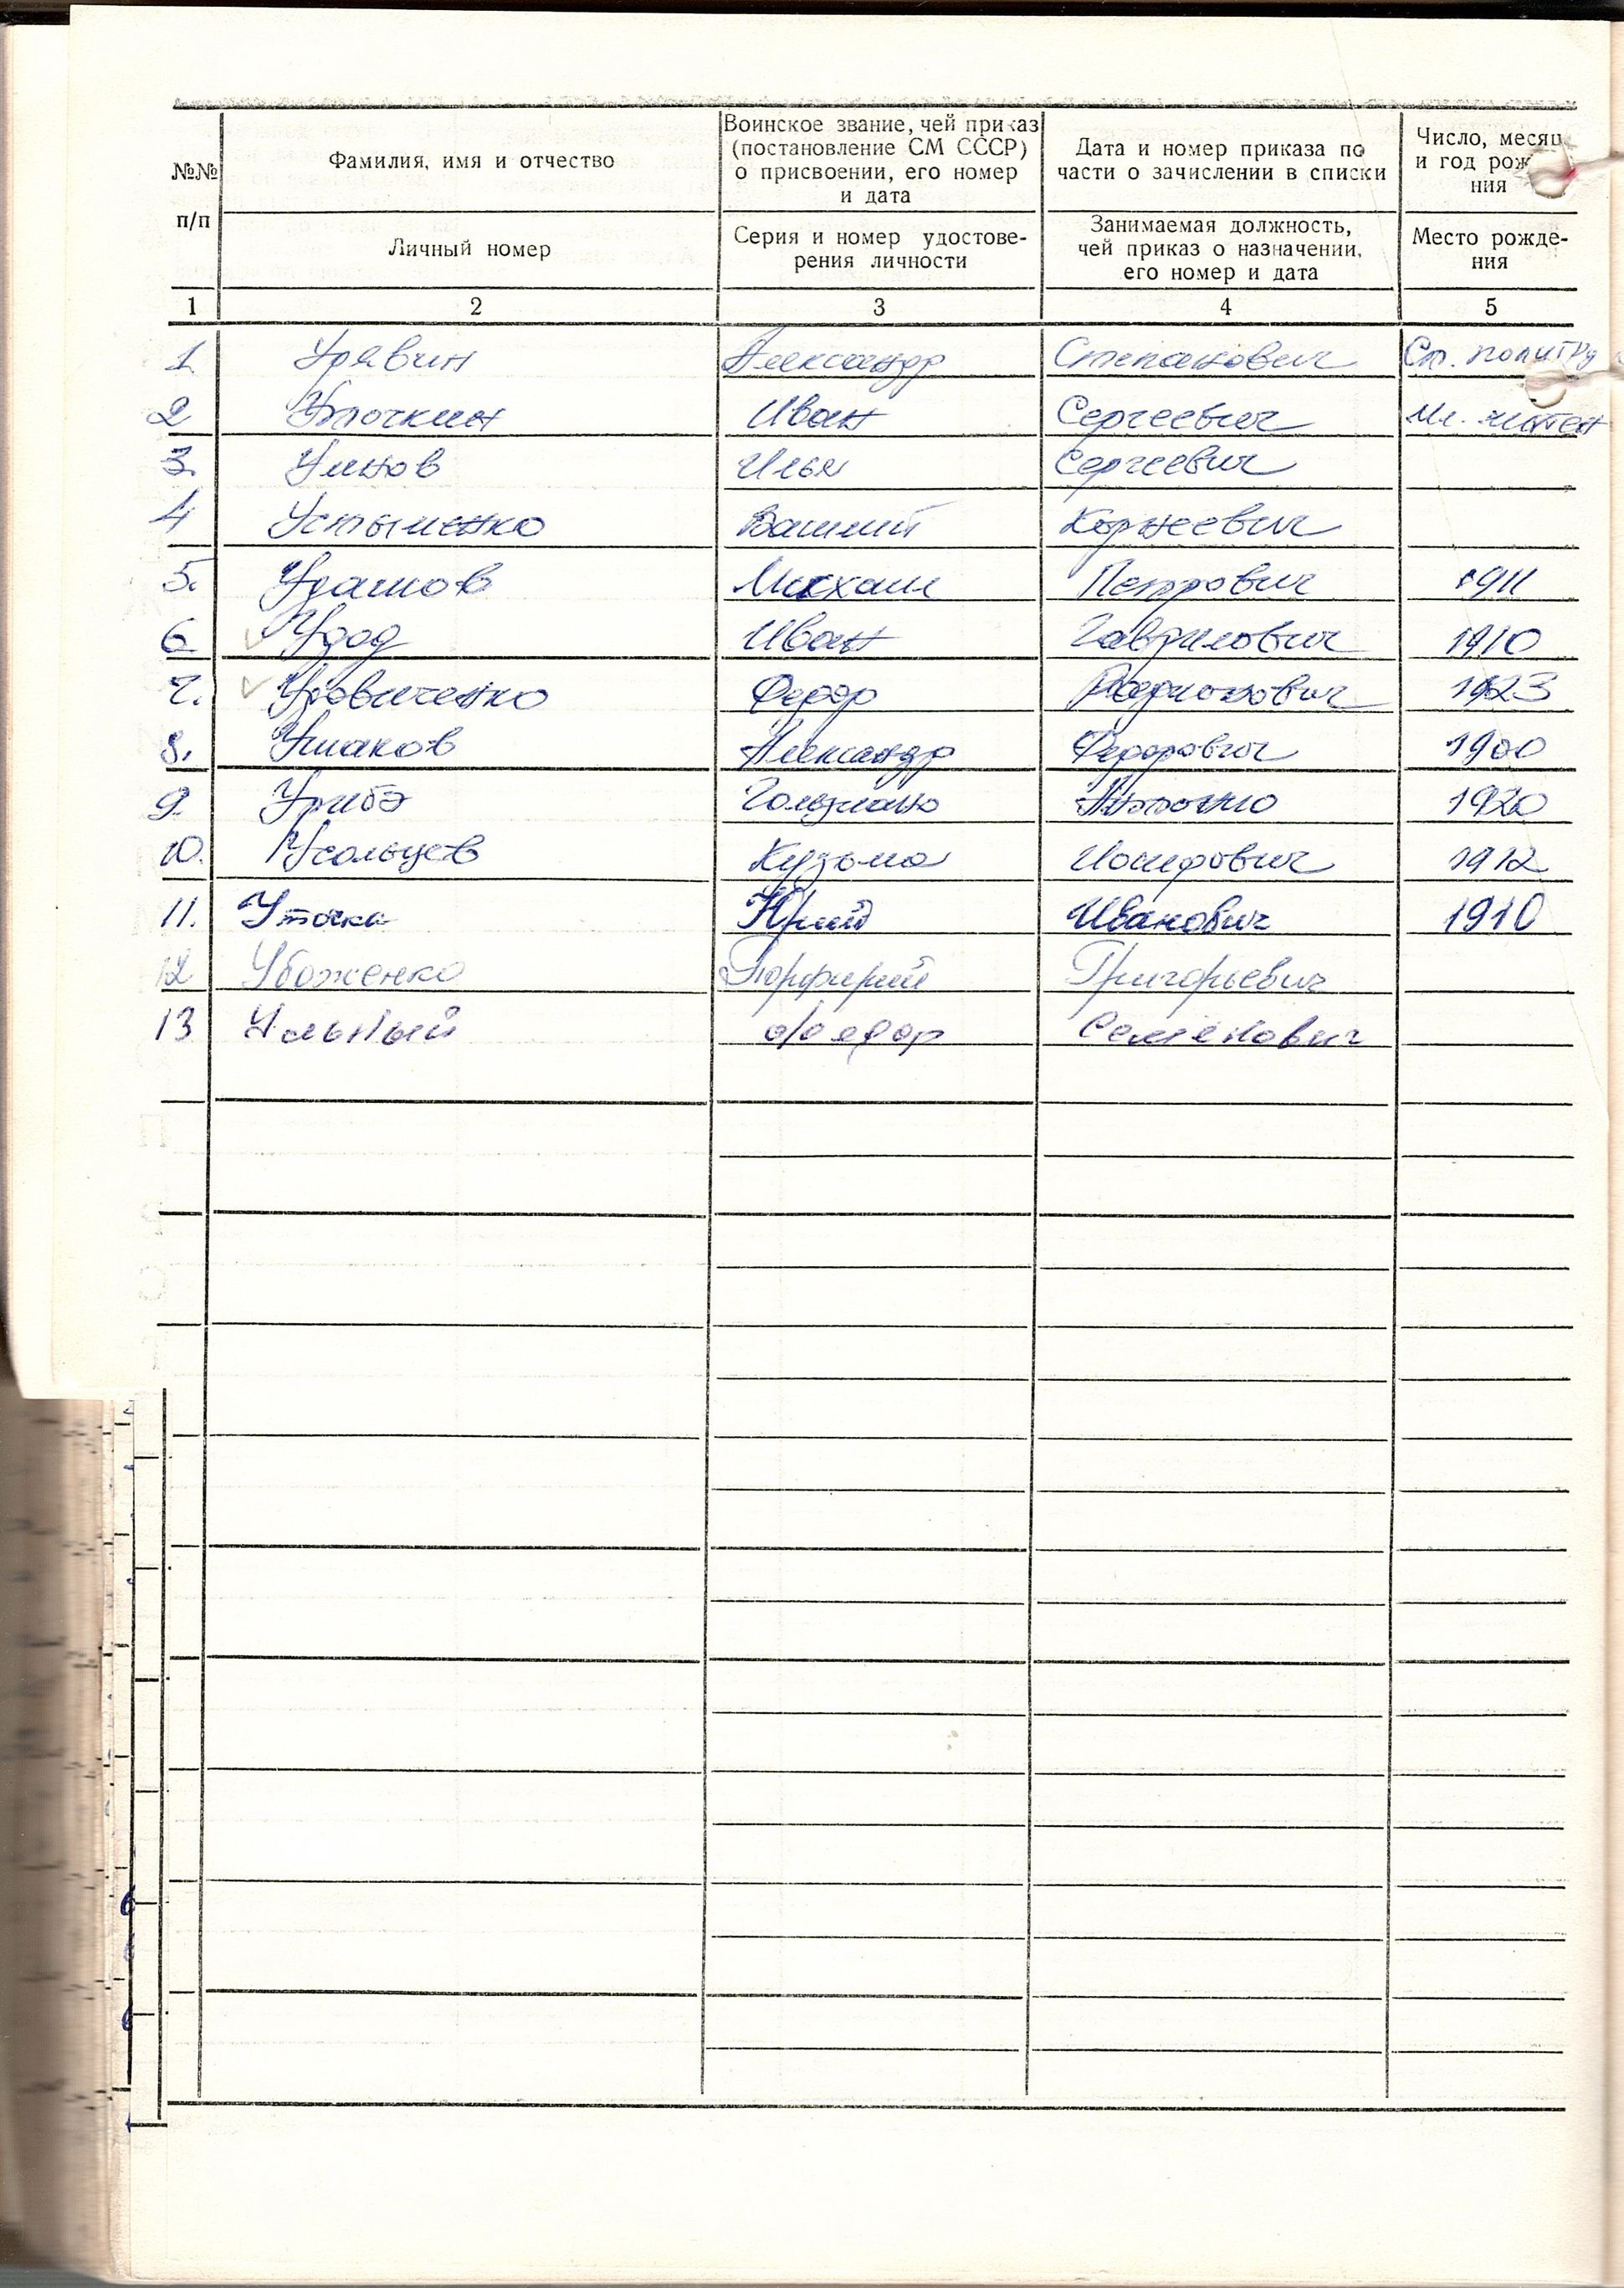 №№ п/п
Фамилия, имя и отчество
Личный номер
Воинское звание, чей приказ
(постановление СМ СССР)
о присвоении, его номер
и дата
Серия и номер удостове-
рения личности
Дата и номер приказа по
части о зачислении в списки
Занимаемая должность,
чей приказ о назначении,
его номер и дата
Число, месяц
и год рож
ния
Место рожде-
ния
1 2 3 4 5
1. Урявин Александр Степанович Ст. политру
2 Уточкин Иван Сергеевич Мл. лейтен
3. Умнов Илья Сергеевич
4 Устыменко Василий Корнеевич
5. Михаил Петрович 1911
6. Удод Иван Гаврилович 1910
7. Удовиченко Федор Родионович 1923
8. Ушаков Александр Федорович 1900
9. Урибэ Антонио 1920
10. Усольцев Кузьма Иосифович 1912
11. Уточка Юрий Иванович 1910
12 Убоженко Порфирий Григорьевич
13 Ульный Федор Семёнович